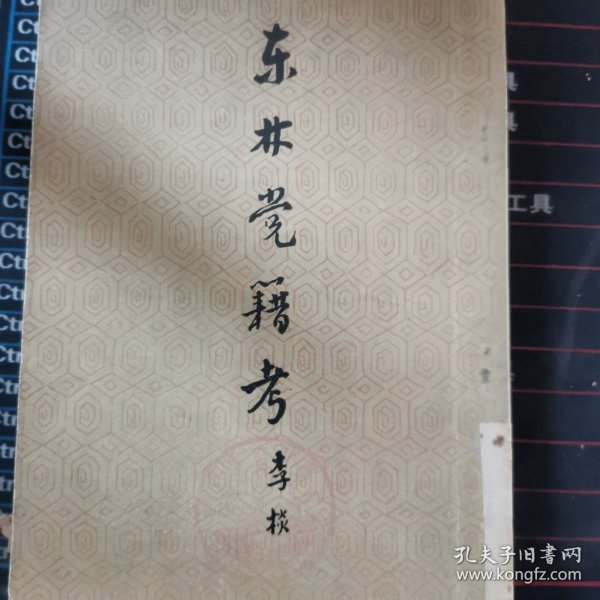 东林党籍考
李棪
Ctr
Ct
Ct
Ct
Ct
Ct
Ct
Ct
Ct
Ct
具
具
工具
孔夫子旧书网
www.kongfz.com